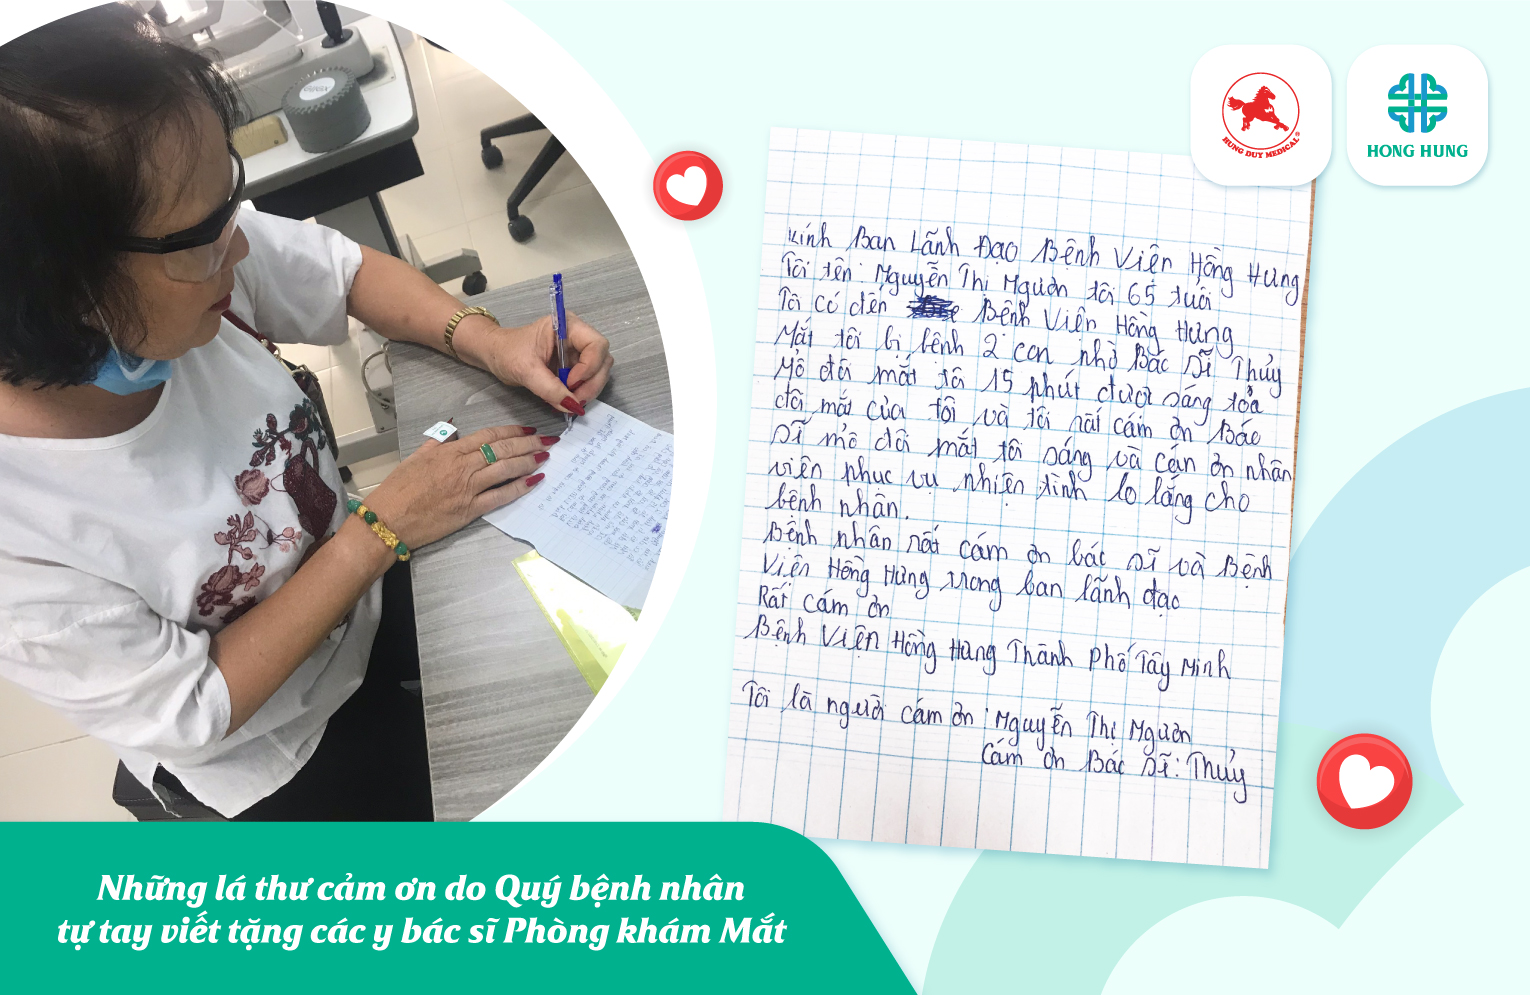 HUNG DUY MEDICAL®
HONG HUNG
Kính Ban Lãnh Đạo Bệnh Viện Hồng Hưng
Tôi tên: Nguyễn Thị Ngươn tôi 65 tuổi
Tôi có đến Bệnh Viện Hồng Hưng
Mắt tôi bị bệnh 2 con nhờ Bác Sĩ Thủy
Mổ đôi mắt tôi 15 phút được sáng tỏa
đôi mắt của tôi và tôi rất cám ơn Bác
sĩ mổ đôi mắt tôi sáng và cán ơn nhân
viên phục vụ nhiện tình lo lắng cho
bệnh nhận.
Bệnh nhân rất cám ơn bác sĩ và Bệnh
Viện Hồng Hưng trong ban lãnh đạo
Rất cám ơn
Bệnh Viện Hồng Hưng Thành Phố Tây Ninh
Tôi là người cám ơn: Nguyễn Thị Ngươn
Cám ơn Bác sĩ: Thủy
Những lá thư cảm ơn do Quý bệnh nhân
tự tay viết tặng các y bác sĩ Phòng khám Mắt